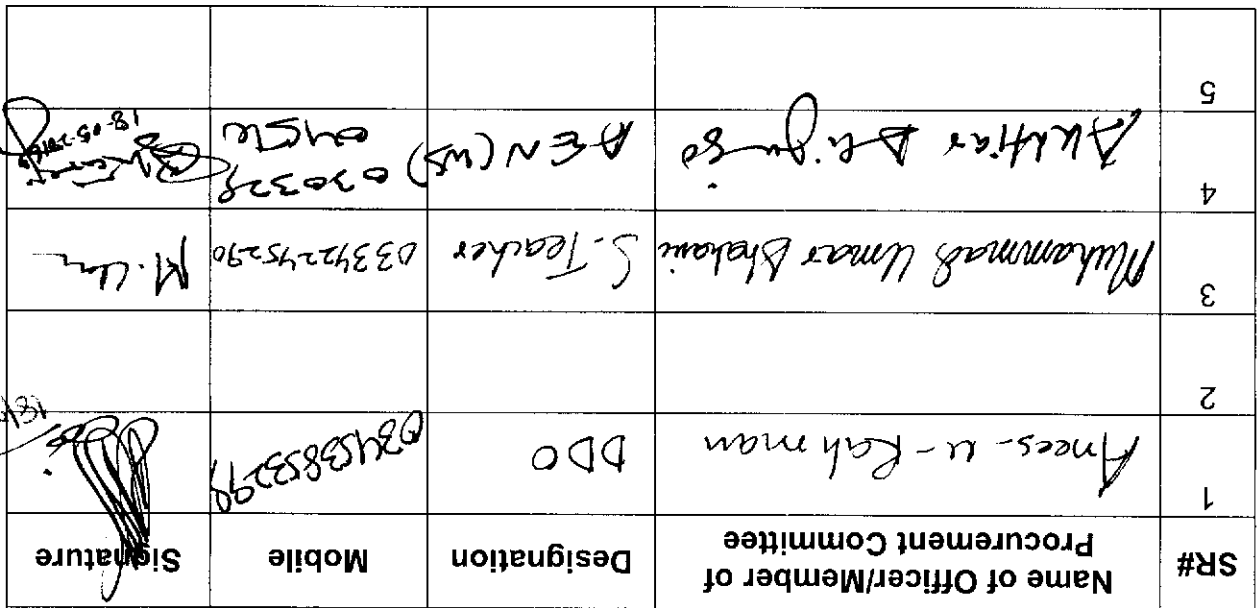 SR# Name of Officer/Member of Procurement Committee Designation Mobile Signature
1 Anees-u-Rahman DDO 03453853299
2
3 Muhammad Umar Shahani S. Teacher 03342245290 M. Um
4 AEN(WS) 030328
18-05-2016
5